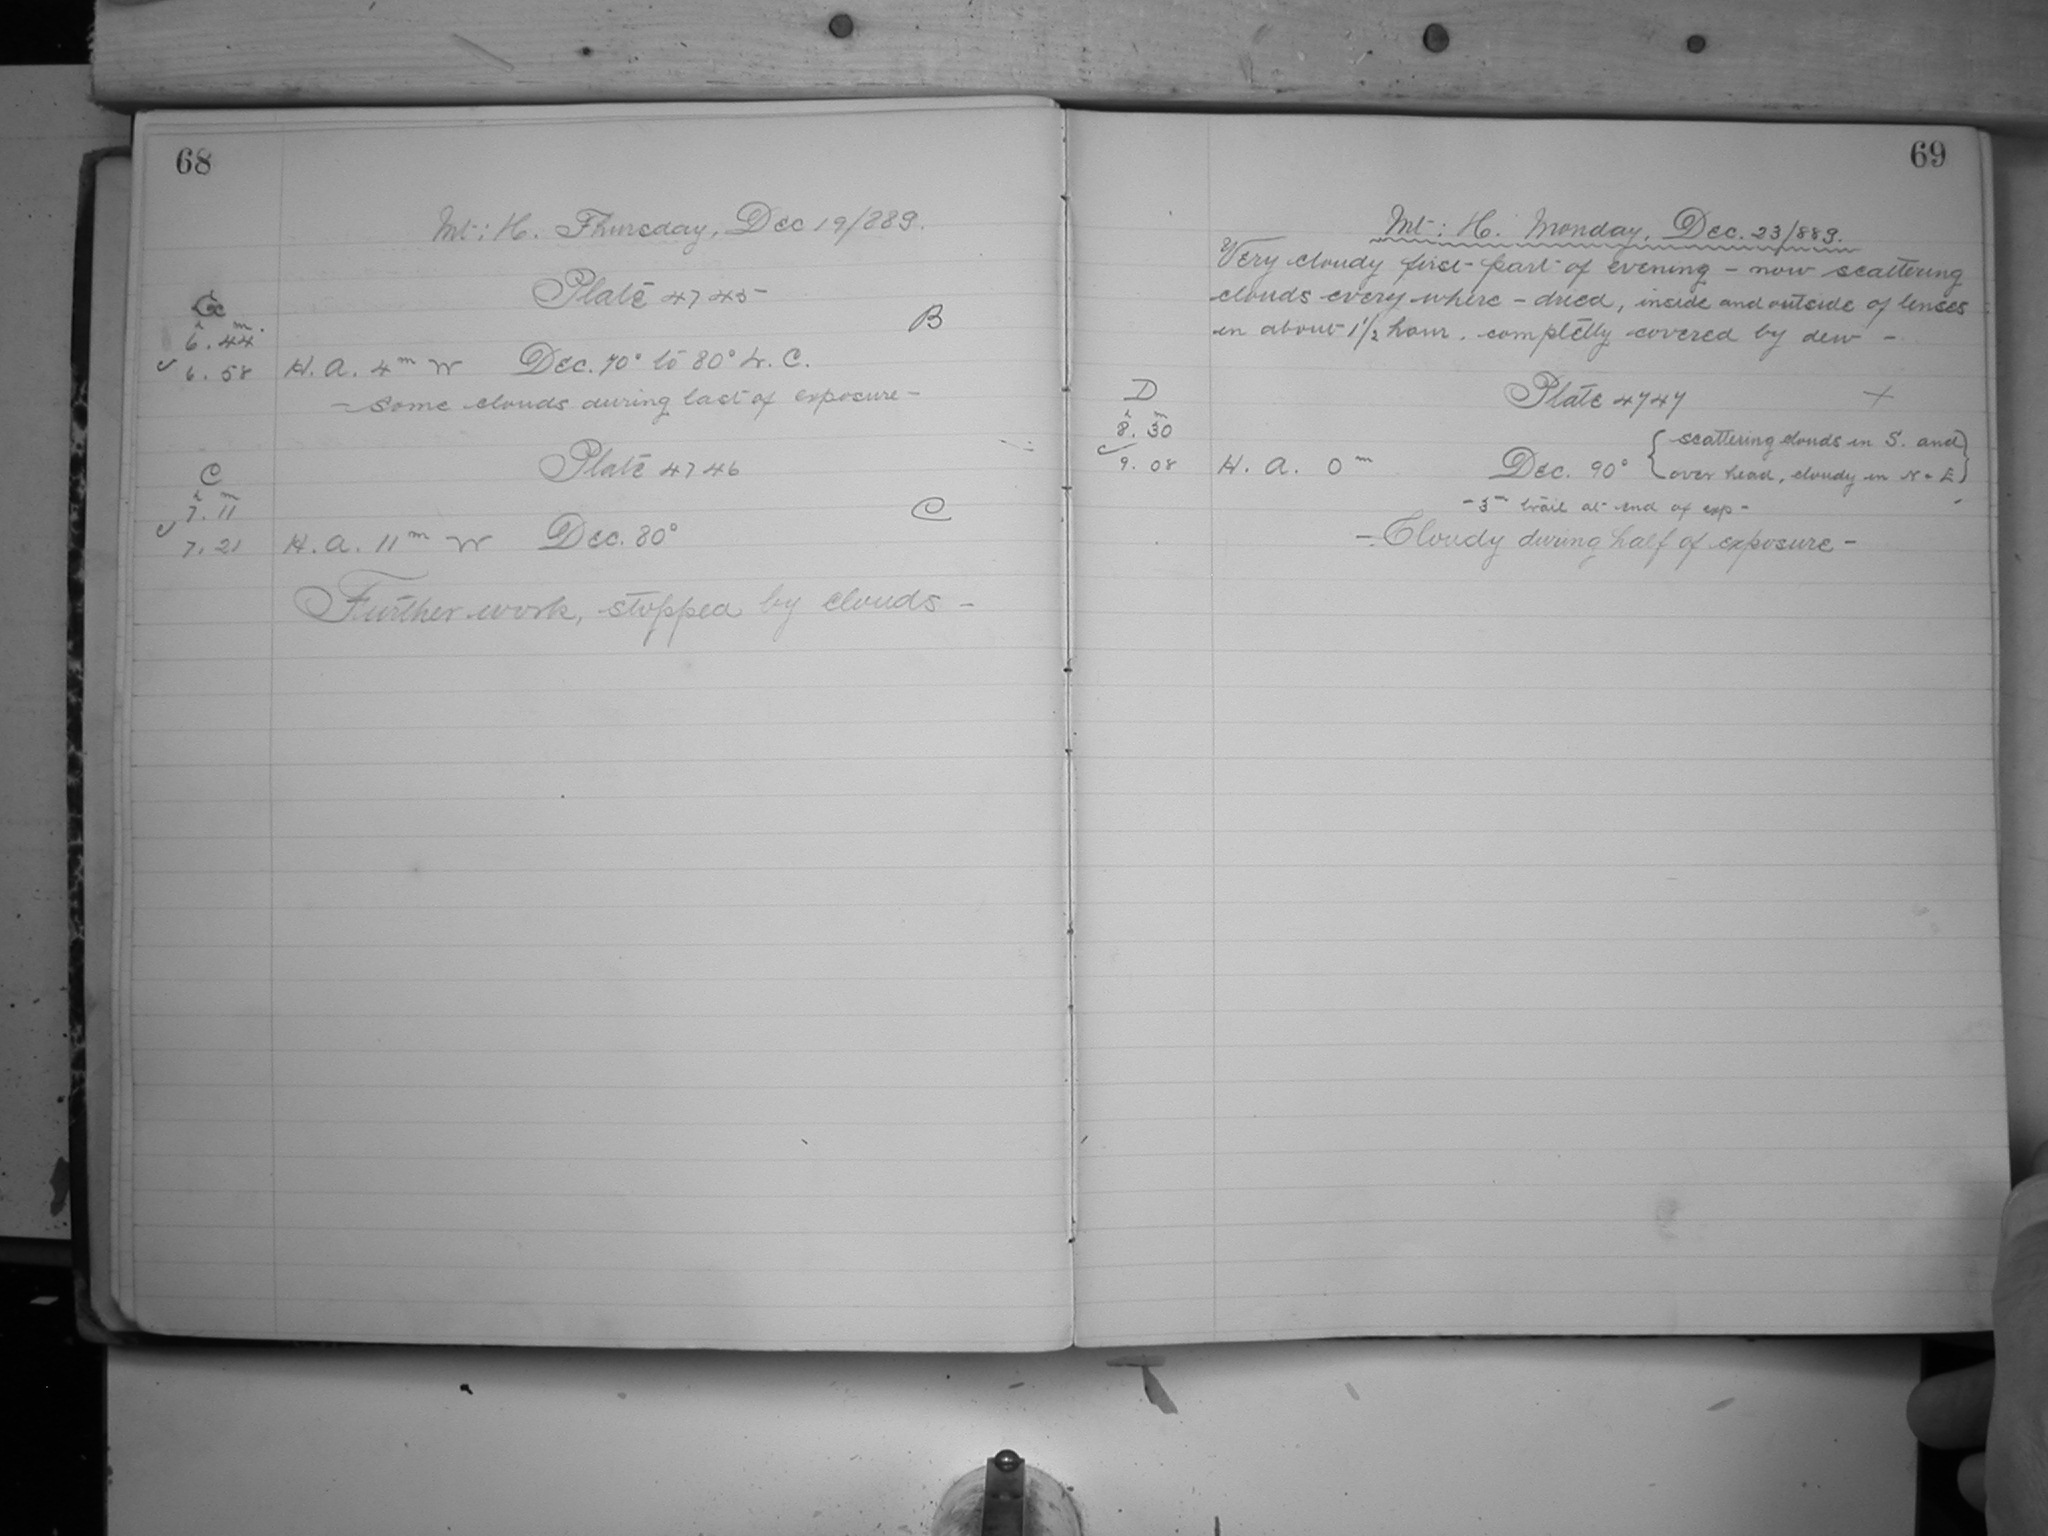 68
Mt: H. Thursday, Dec 19/889.
Plate 4745
B
h m.
6. 44
✓ 6. 58 H. A. 4m W Dec. 70° to 80° L. C.
- some clouds during last of exposure -
Plate 4746
C
h m
7. 11
C
✓ 7. 21 H. A. 11m W Dec. 80°
Further work, stopped by clouds -
69
Mt: H. Monday, Dec. 23/889.
Very cloudy first part of evening - now scattering
clouds every where - dried, inside and outside of lenses
in about 1 1/2 hour. completly covered by dew -
D
Plate 4747 +
h m
8. 30
scattering clouds in S. and
✓ 9. 08 H. A. 0m Dec. 90° over head, cloudy in N + E
- 5m trail at end of exp -
- Cloudy during half of exposure -